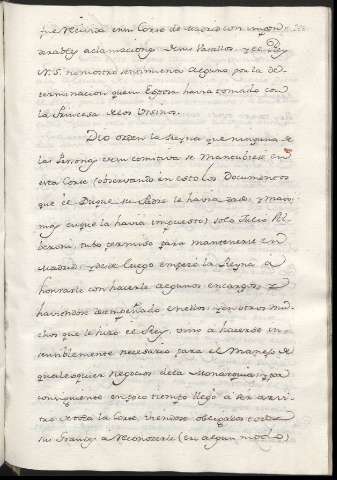 en su Corte de Madrid con impon-
derables aclamaciones de sus Vasallos, y el Rey
N. S. no mostro sentimiento alguno por la de-
terminacion que su Esposa havia tomado con
la Princesa de los Ursinos.
Dio orden la Reyna que ninguna de
las Personas de su comitiva se mantubiese en
esta Corte (observando en esto los Documentos
que el Duque su Padre le havia dado, y maxi-
mas en que la havia impuesto) solo Julio Al-
beroni, tubo permiso para mantenerse en
Madrid, y desde luego empezó la Reyna a
honrarle con hacerle algunos encargos, y
haviendose desempeñado en ellos, y en otros mu-
chos que le hizo el Rey, vino a hacerse in-
sensiblemente necesario para el Manejo de
qualesquier negocios de la Monarquia, y por
consiguiente en poco tiempo llegó a ser arvi-
tro de toda la Corte, viendose obligados todos
los Grandes a reconocerle (en algun modo)